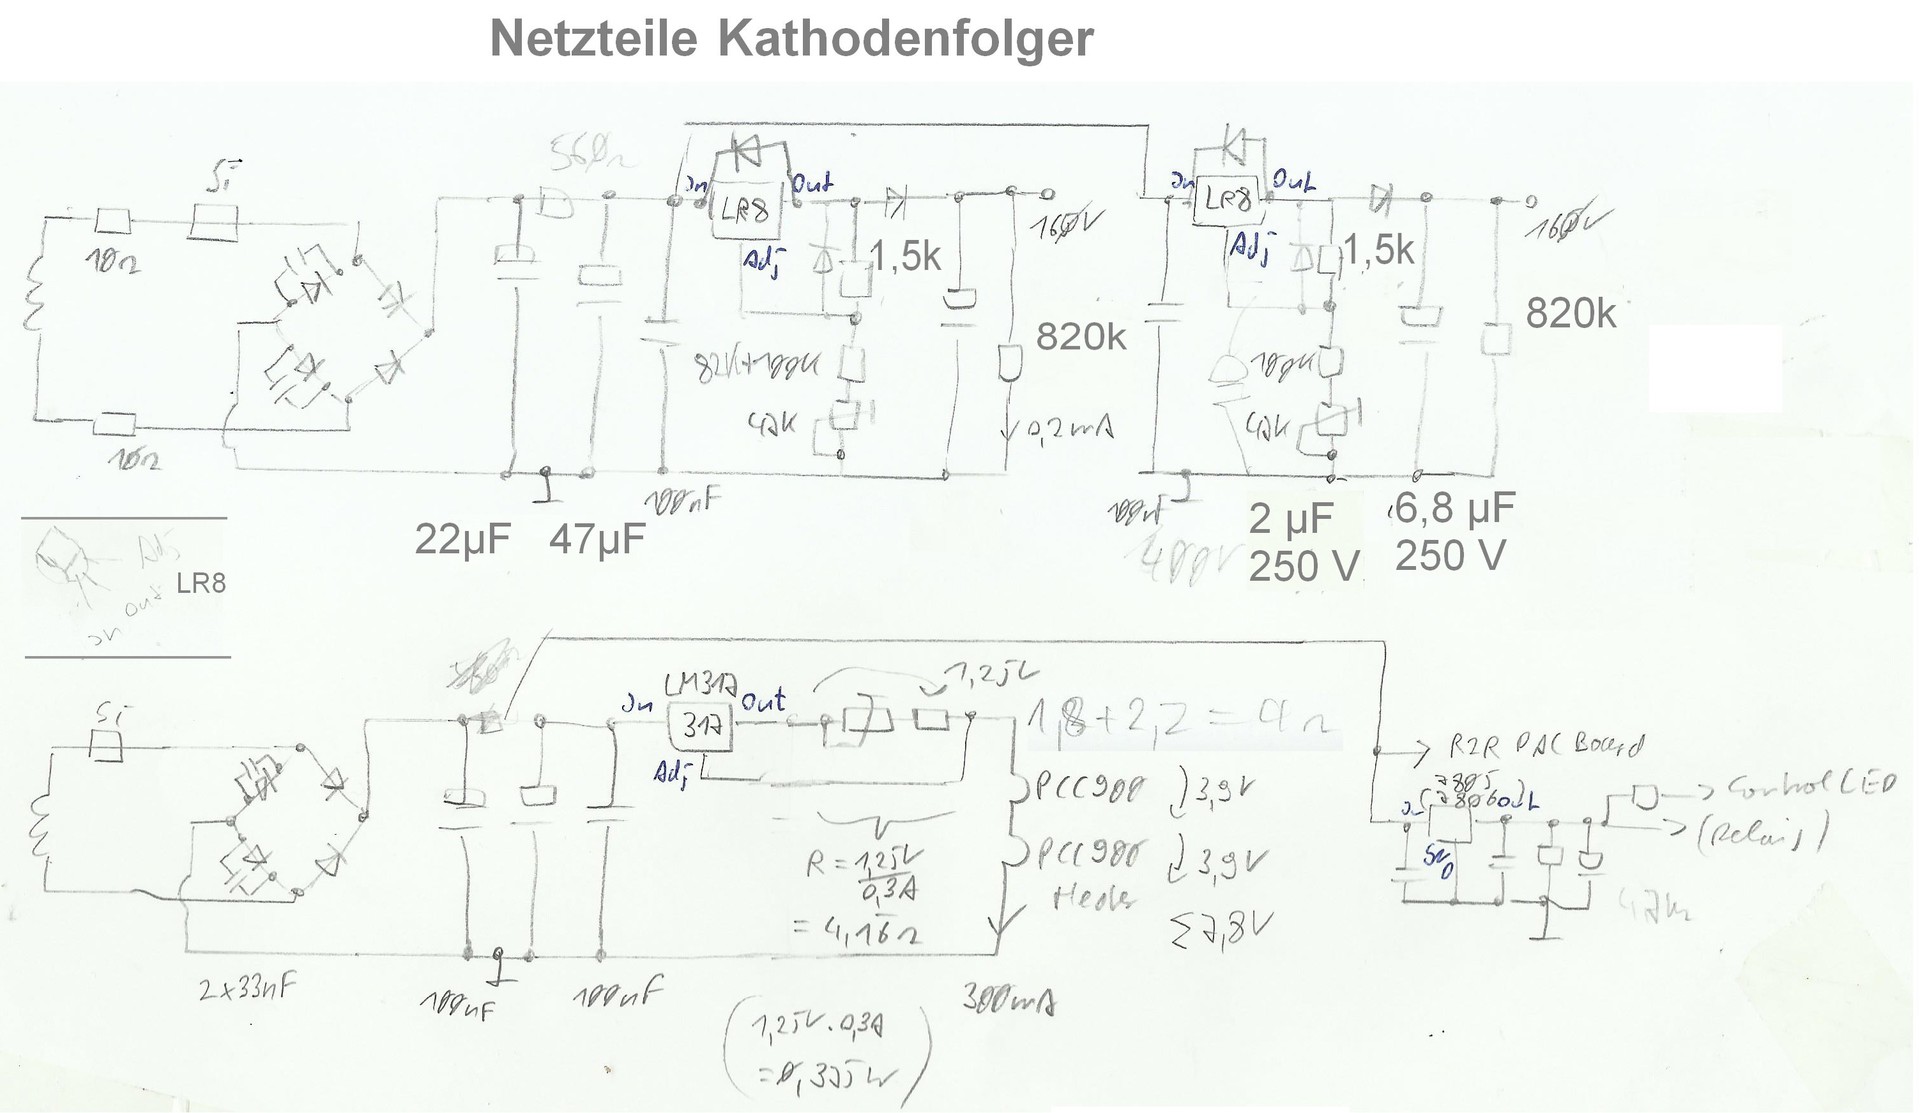 Netzteile Kathodenfolger
Si
10Ω
10Ω
560Ω
In
LR8
Out
Adj
1,5k
160V
82K+100K
47K
820k
0,2mA
In
LR8
Out
Adj
1,5k
160V
100K
47K
820k
22µF
47µF
100nF
100nF
400V
2 µF
250 V
6,8 µF
250 V
Adj
LR8
Out
In
Si
LM317
In
317
Out
Adj
1,25V
1,8+2,2=4Ω
PCC900
3,9V
PCC900
3,9V
Heater
Σ7,8V
R=1,25V
0,3A
= 4,16Ω
R2R DAC Board
7805
(7806)
In
Out
GND
Control LED
(Relais)
2x33nF
100nF
100nF
300mA
(1,25V·0,3A
=0,375W)